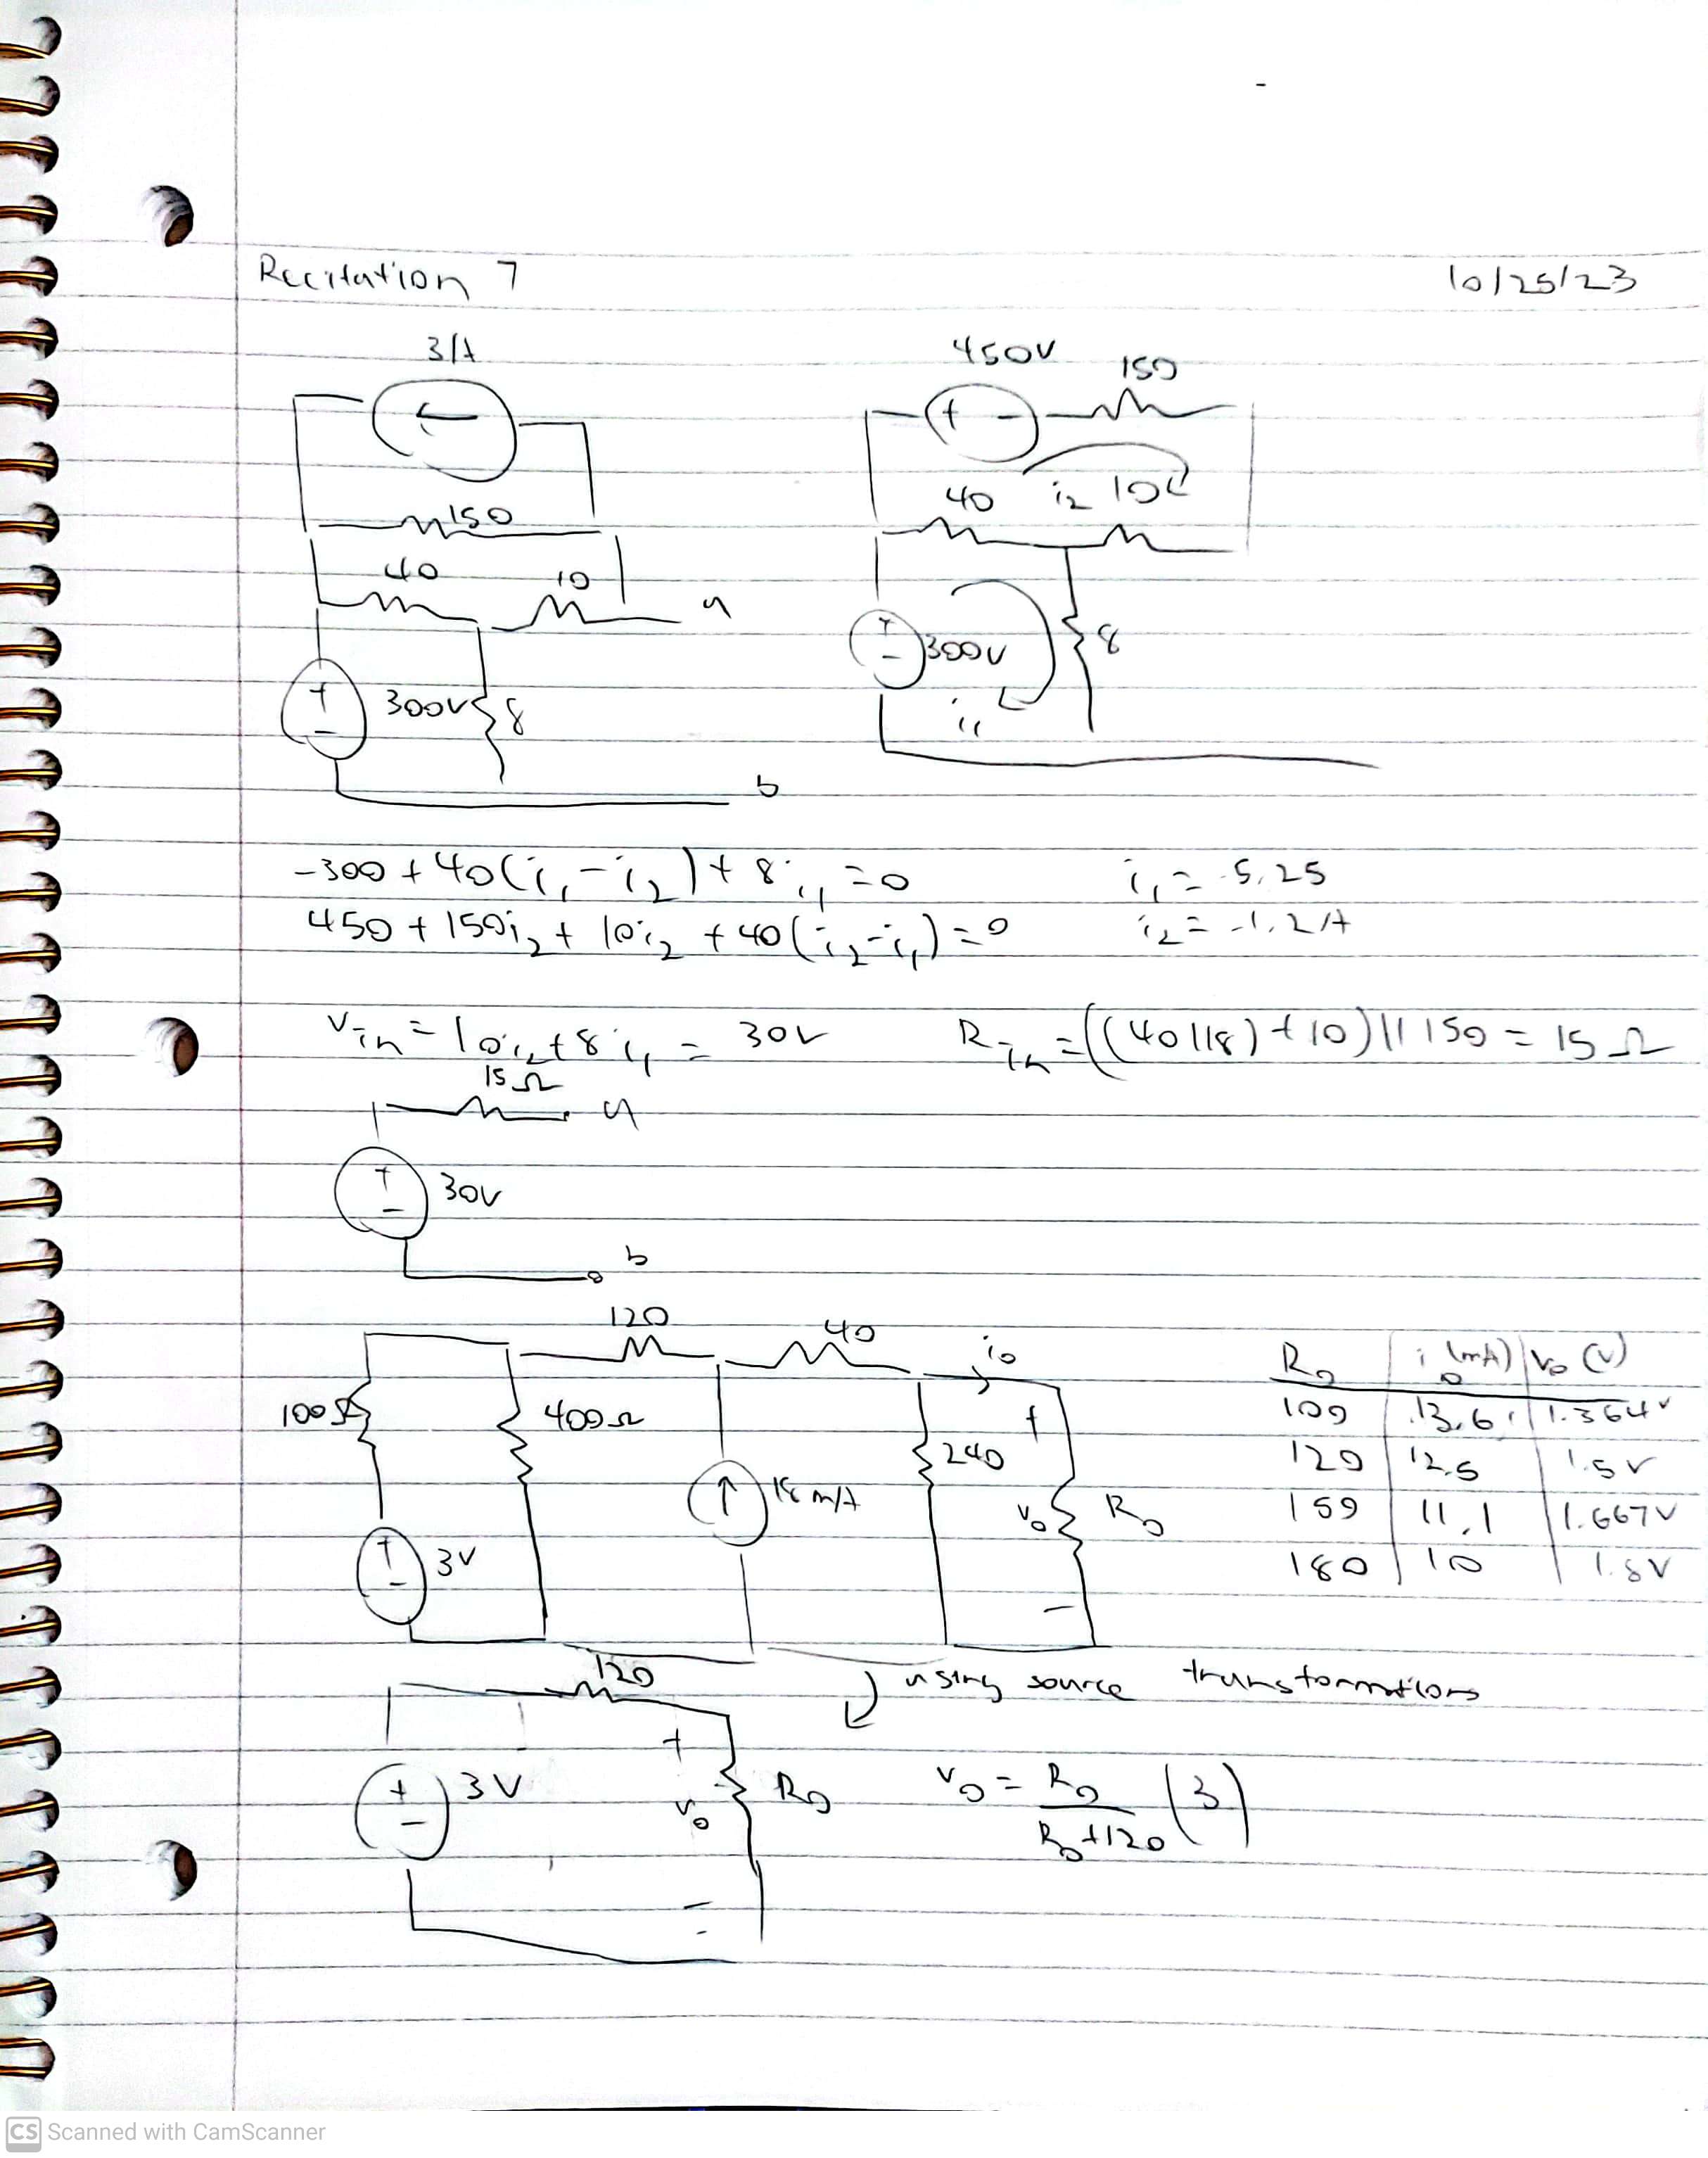 Recitation 7 10/25/23
3A
150
40 10 a
300V 8
b
450V 150
40 i₂ 10
300V 8
i₁
-300 + 40(i₁ - i₂) + 8i₁ = 0 i₁ = 5.25
450 + 150i₂ + 10i₂ + 40(i₂ - i₁) = 0 i₂ = -1.2A
Vₜₕ = 10i₂ + 8i₁ = 30V Rₜₕ = ((40||8) + 10) || 150 = 15 Ω
15 Ω a
+ 30V
-
b
120 40 i₀
100Ω 400Ω 240 +
18mA v₀ R₀
+ 3V
- -
R₀ | i₀ (mA) | v₀ (V)
100 | 13.6 | 1.364V
120 | 12.5 | 1.5V
150 | 11.1 | 1.667V
180 | 10 | 1.8V
using source transformations
120
+ 3V + v₀ R₀ v₀ = R₀/(R₀+120) (3)
- -
CS Scanned with CamScanner